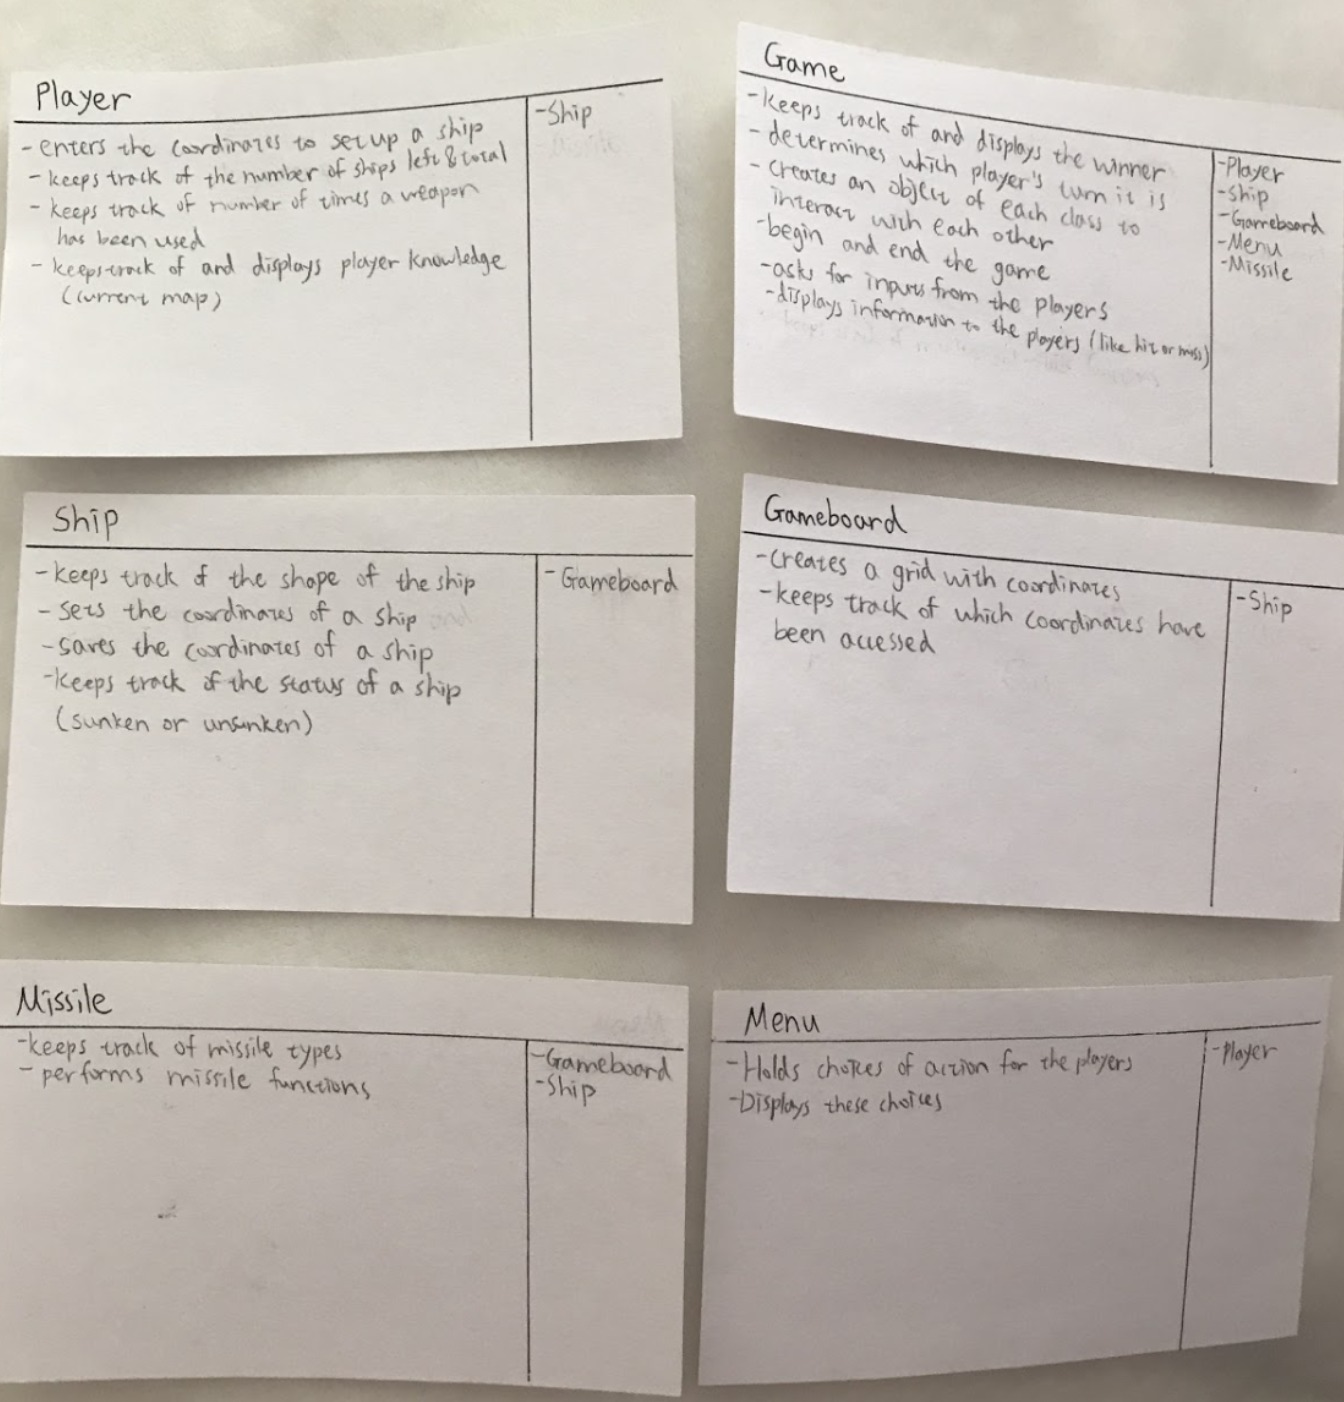 Player
- enters the coordinates to set up a ship
- keeps track of the number of ships left & total
- keeps track of number of times a weapon
has been used
- keeps track of and displays player knowledge
(current map)
-Ship
Game
-keeps track of and displays the winner
- determines which player's turn it is
- creates an object of each class to
interact with each other
-begin and end the game
-asks for inputs from the players
-displays information to the players (like hit or miss)
-Player
-Ship
-Gameboard
-Menu
-Missile
Ship
-keeps track of the shape of the ship
- sets the coordinates of a ship
-saves the coordinates of a ship
-keeps track of the status of a ship
(sunken or unsunken)
- Gameboard
Gameboard
-creates a grid with coordinates
-keeps track of which coordinates have
been accessed
-Ship
Missile
-keeps track of missile types
- performs missile functions
-Gameboard
-Ship
Menu
-Holds choices of action for the players
-Displays these choices
-Player